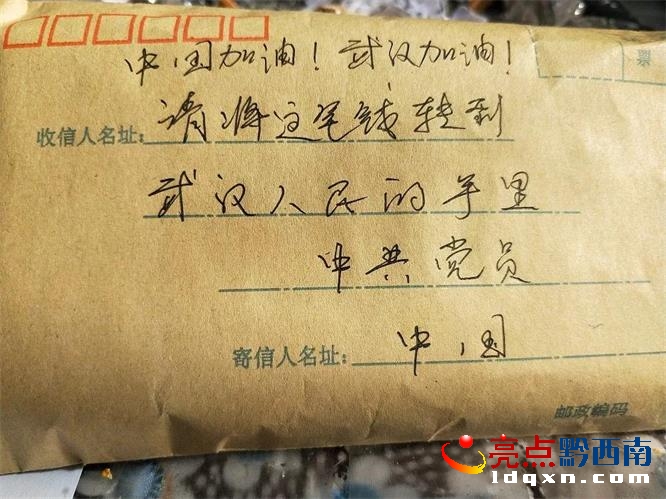 中国加油！武汉加油！
票
收信人名址：请将这笔钱转到
武汉人民的手里
中共党员
寄信人名址：中国
邮政编码
亮点黔西南
ldqxn.com